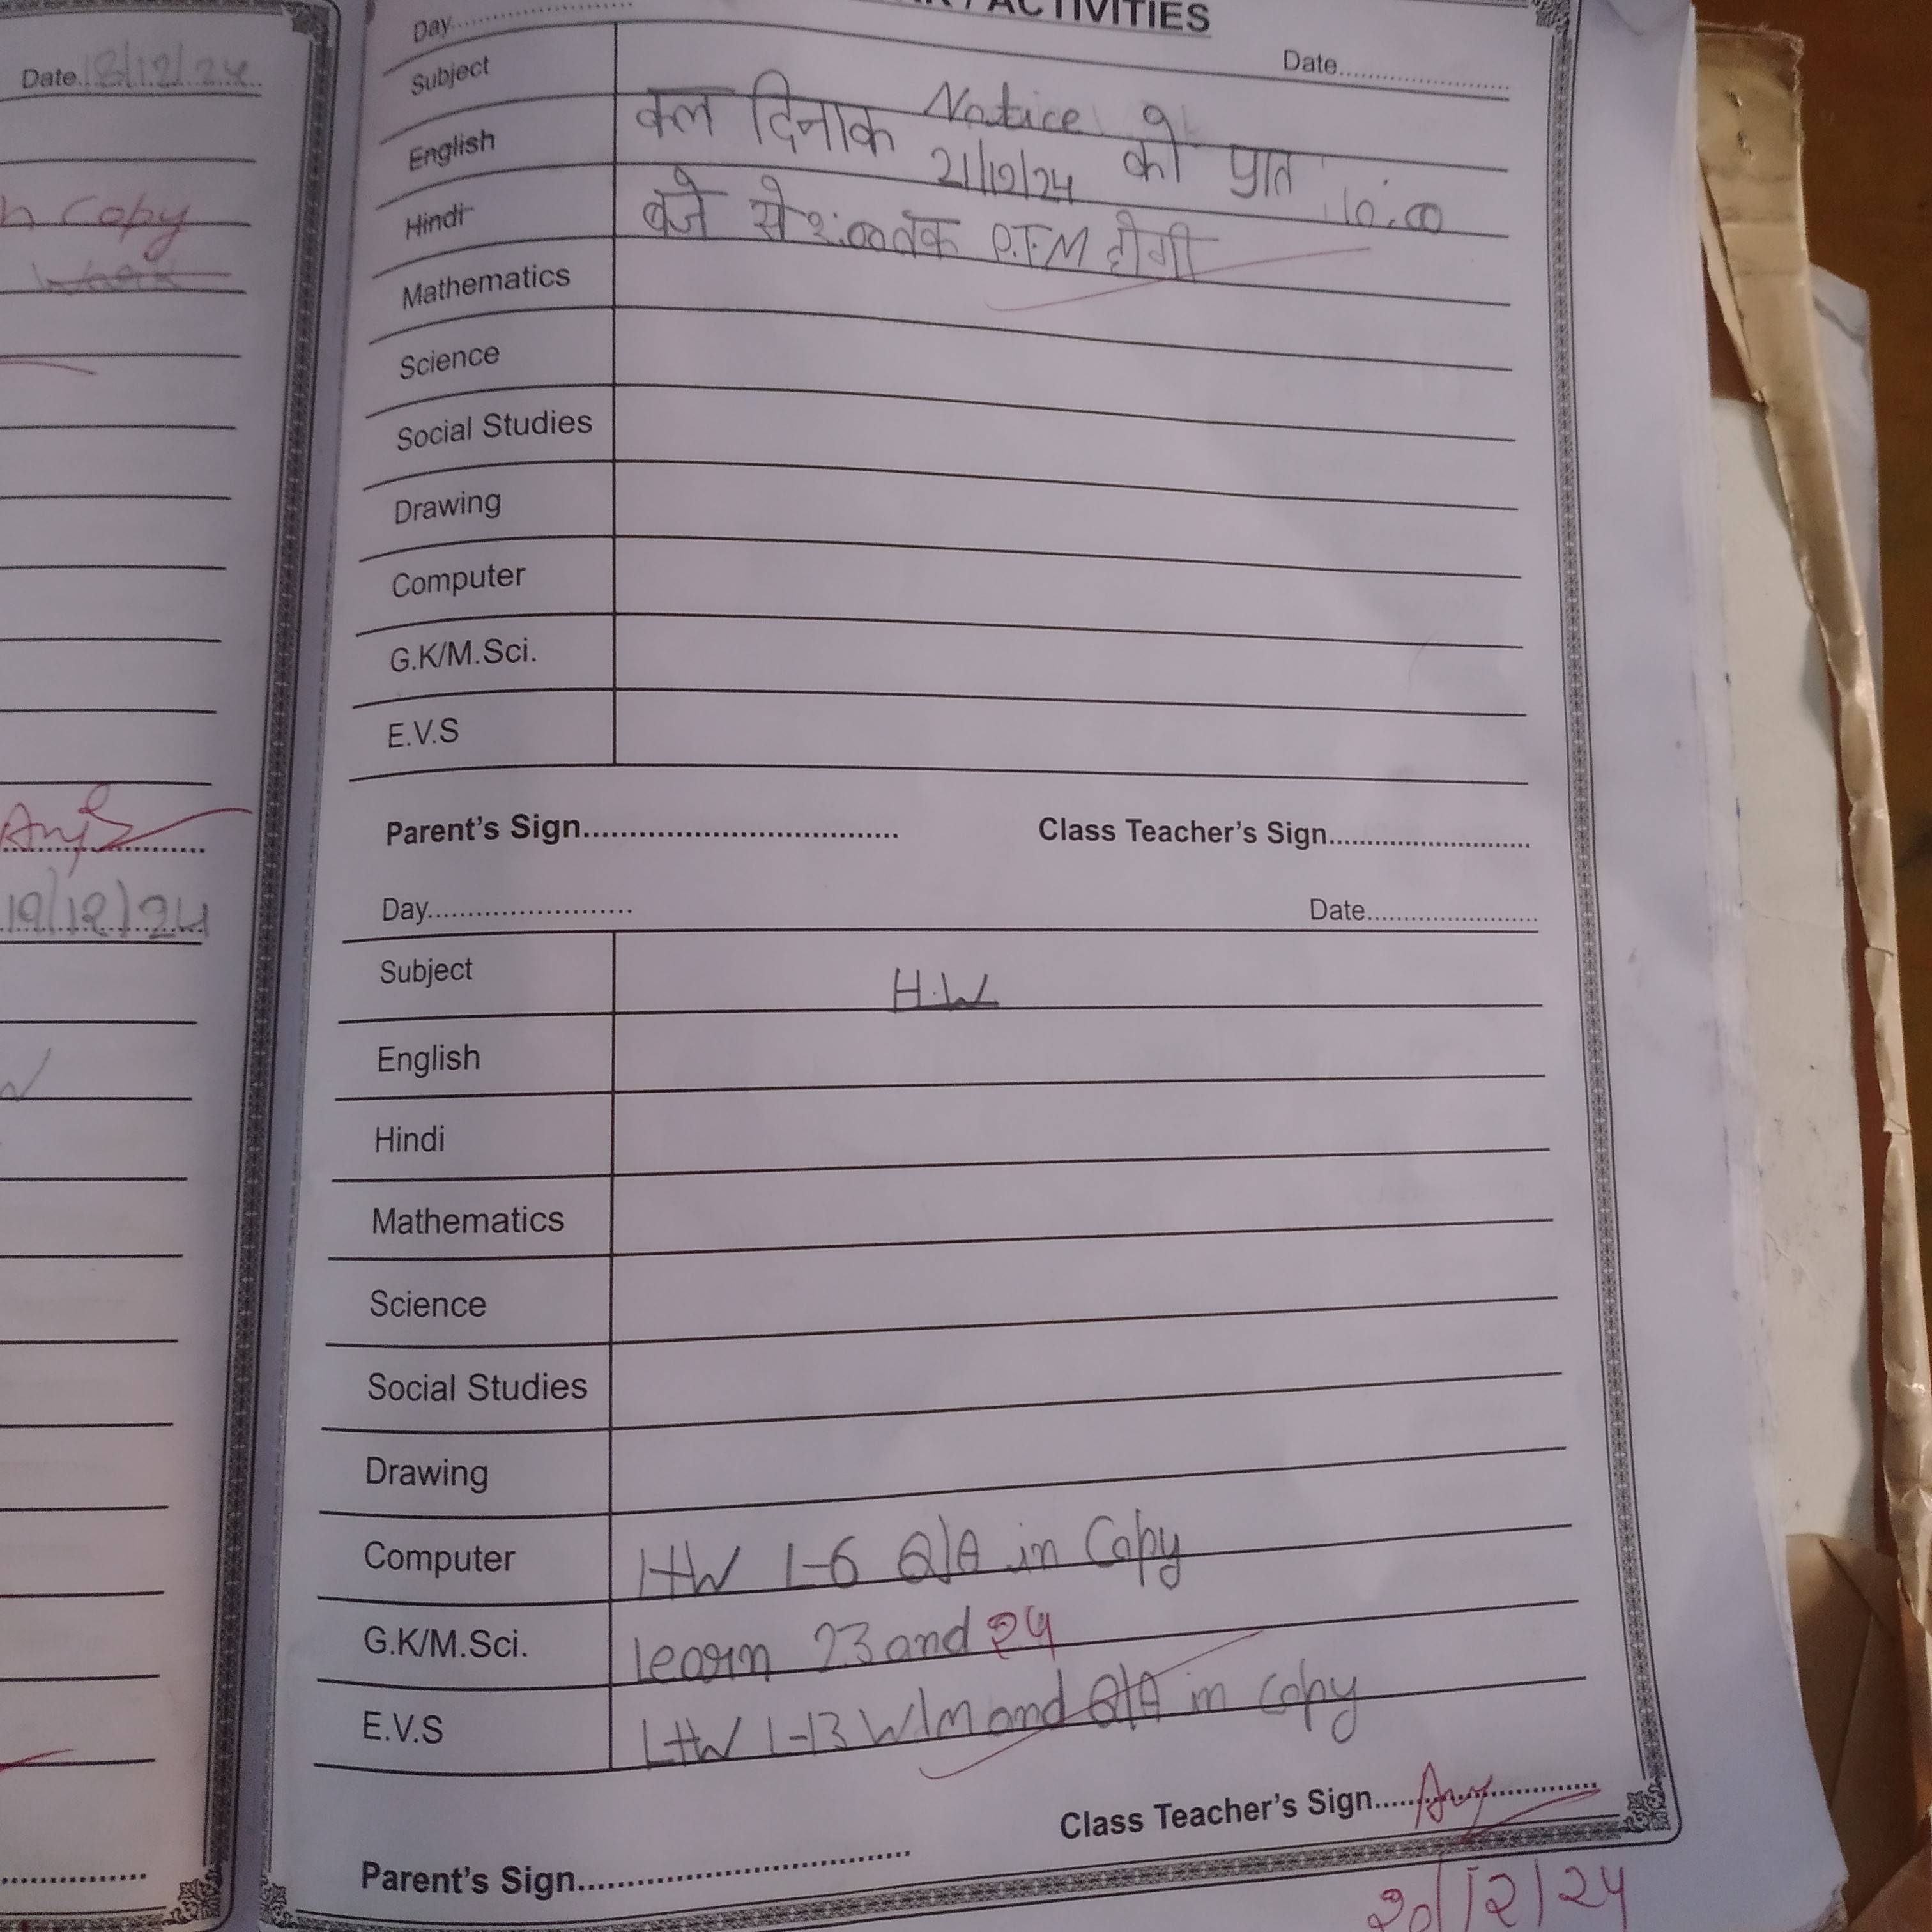 Date 18/12/24
n Copy
Work
19/12/24
ACTIVITIES
Day
Date
Subject
Notice
English
कल दिनाक 21/12/24 को प्रात 10:00
Hindi
बजे से २:००तक P.T.M होगी
Mathematics
Science
Social Studies
Drawing
Computer
G.K/M.Sci.
E.V.S
Parent's Sign
Class Teacher's Sign
Day
Date
Subject
H.W
English
Hindi
Mathematics
Science
Social Studies
Drawing
Computer
L+W L-6 Q/A in Copy
G.K/M.Sci.
learn 23 and 24
E.V.S
L+W L-13 W/M and Q/A in copy
Class Teacher's Sign
Parent's Sign
20/12/24